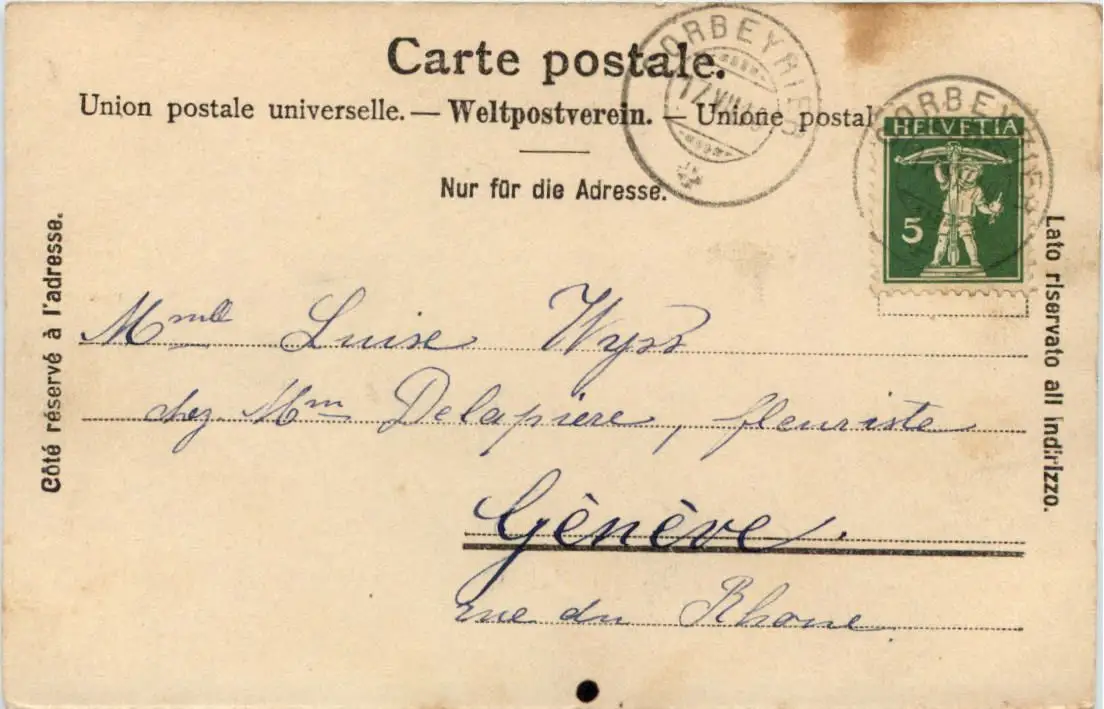 Carte postale.
Union postale universelle. — Weltpostverein. — Unione postal
Nur für die Adresse.
Côté réservé à l'adresse.
Lato riservato all indirizzo.
CORBEYRIER
CORBEYRIER
HELVETIA
5
Mmelle Luise Wyss
chez Mm Delapière, fleuriste
Gènève.
rue du Rhone.